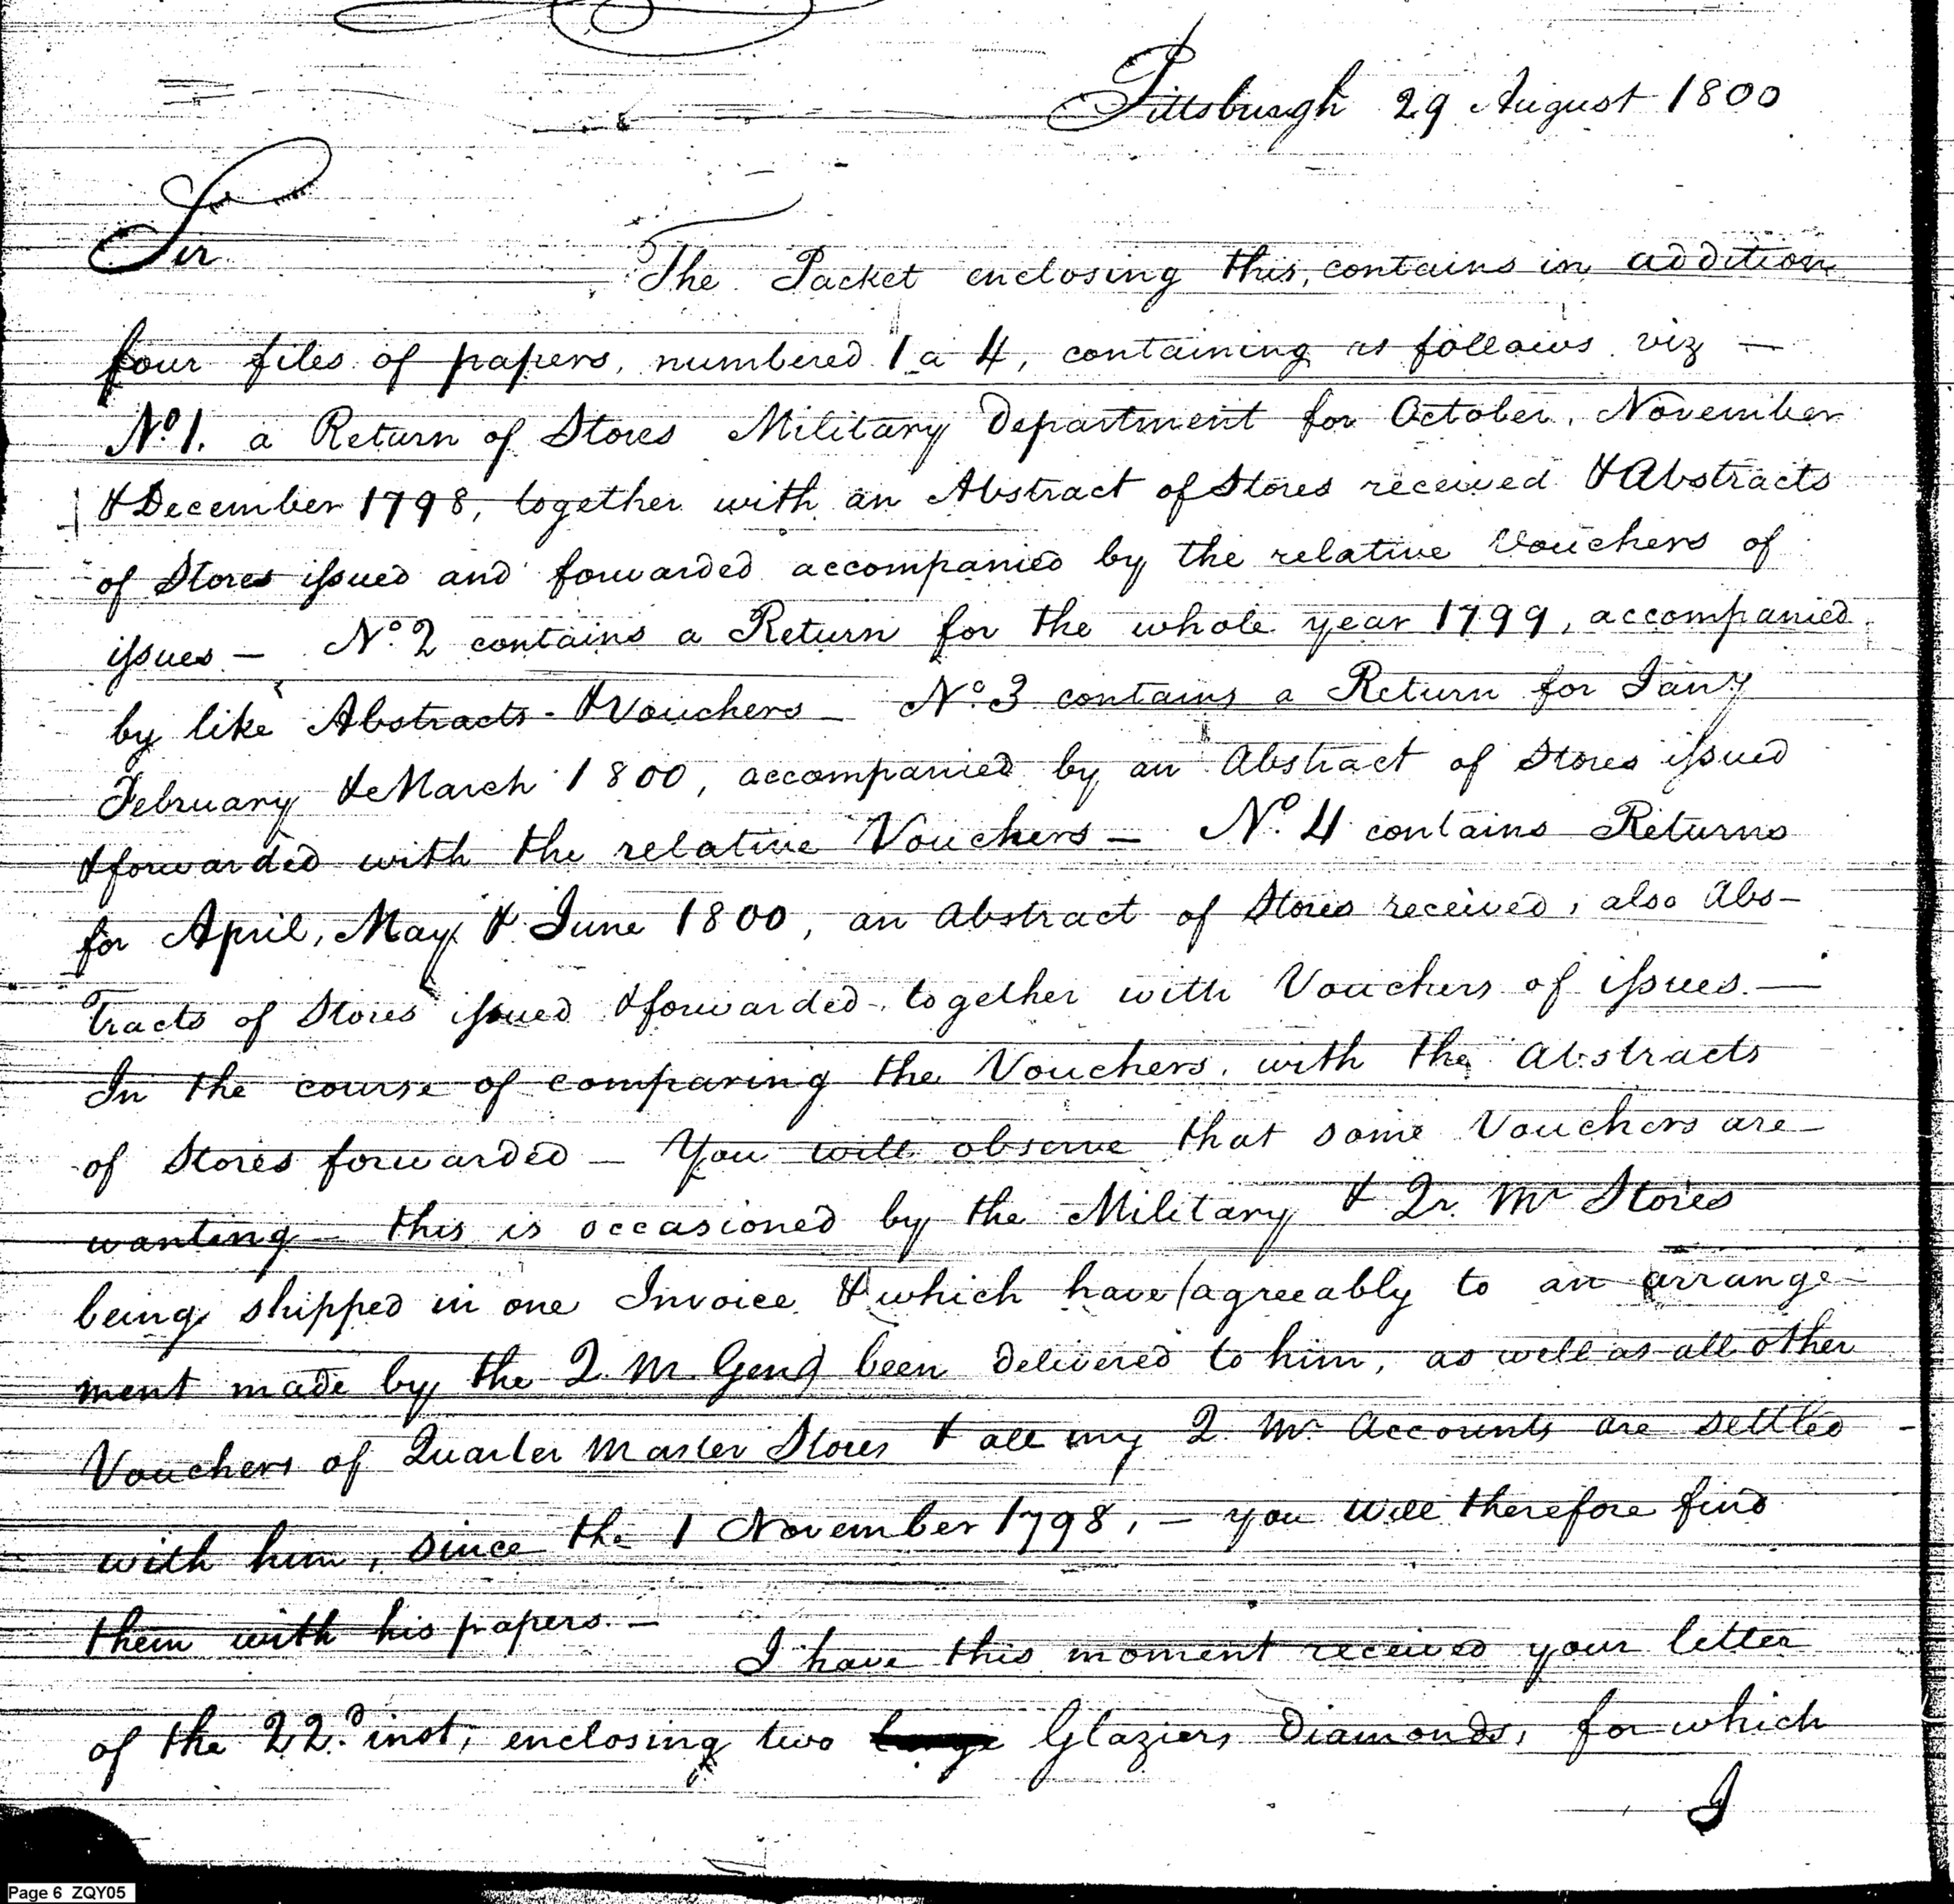 Pittsburgh 29 August 1800
Sir
The Packet enclosing this, contains in addition
four files of papers, numbered 1 a 4, containing as follows viz —
No. 1. a Return of Stores Military Department for October, November
& December 1798, together with an Abstract of Stores received & Abstracts
of Stores issued and forwarded accompanied by the relative Vouchers of
issues — No. 2 contains a Return for the whole year 1799, accompanied
by like Abstracts & Vouchers — No. 3 contains a Return for Jany
February & March 1800, accompanied by an Abstract of Stores issued
& forwarded with the relative Vouchers — No. 4 contains Returns
for April, May & June 1800, an Abstract of Stores received, also Abs-
tracts of Stores issued & forwarded, together with Vouchers of issues. —
In the course of comparing the Vouchers, with the Abstracts
of Stores forwarded — You will observe that some Vouchers are
wanting — this is occasioned by the Military & Qr. Mr Stores
being shipped in one Invoice & which have (agreeably to an arrange-
ment made by the Q. M. Genl) been delivered to him, as well as all other
Vouchers of Quarter Master Stores & all my Q. Mr. Accounts are settled
with him, since the 1 November 1798, — you will therefore find
them with his papers. —
I have this moment received your letter
of the 22d. inst, enclosing two Glaziers Diamonds, for which
I
Page 6 ZQY05